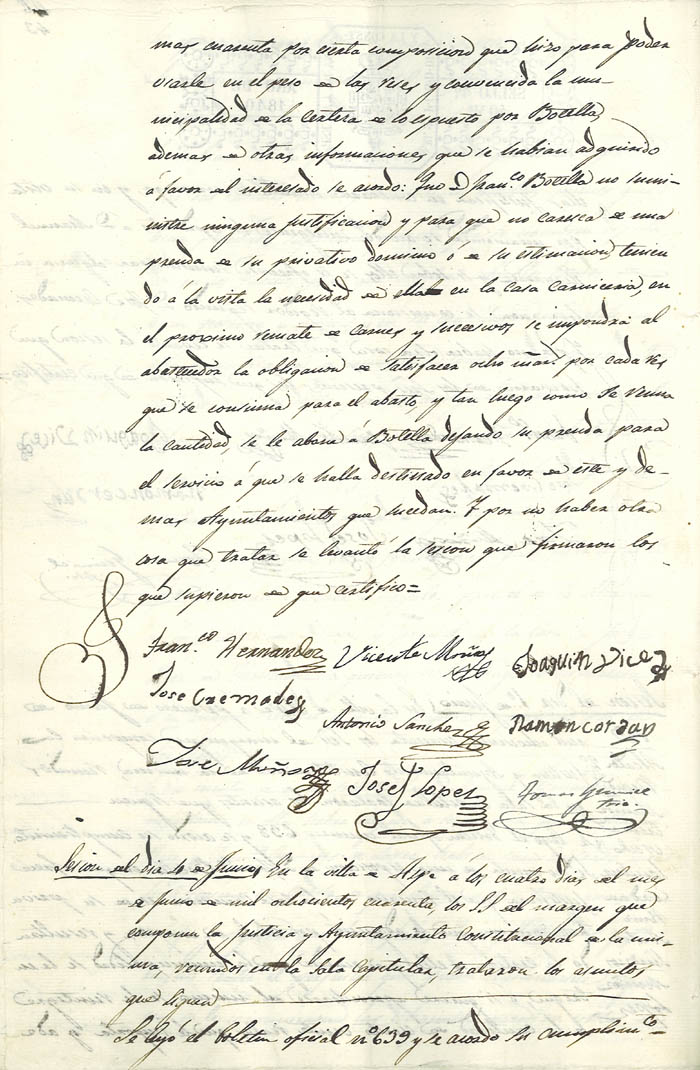 mas cuarenta por cierta composicion que hizo para poder
usarla en el peso de las reses y convencida la mu-
nicipalidad de la certeza de lo espuesto por Botella,
ademas de otras informaciones que se habian adquirido
á favor del interesado se acordo: Que D. Fran.co Botella no sumi-
nistre ninguna justificacion y para que no caresca de una
prenda de su privativo dominio ó de su estimacion, tenien
do á la vista la necesidad de ella en la casa Carniceria, en
el proximo remate de carnes y sucesivos se impondrá al
abastecedor la obligacion de satisfacer ocho mar. por cada res
que se consuma para el abasto, y tan luego como se reuna
la cantidad, se le abone á Botella dejando su prenda para
el servicio á que se halla destinado en favor de este y de-
mas Ayuntamientos que sucedan. Y por no haber otra
cosa que tratar se levantó la sesion que firmaron los
que supieron de que certifico=
Fran.co Hernandez Vicente Muñoz Joaquin Dicez
Jose Cremades
Antonio Sanchez Ramon cordan
Jose Muñoz Jose Lopez Tomas
Srio.
Sesion del dia 4 de Junio En la villa de Aspe á los cuatro dias del mes
de Junio de mil ochocientos cuarenta, los SS del margen que
componen la Justicia y Ayuntamiento Constitucional de la mis-
ma, reunidos en la Sala Capitular, trataron los asuntos
que siguen
Se leyó el boletin oficial nº 639 y se acordo su cumplim.to